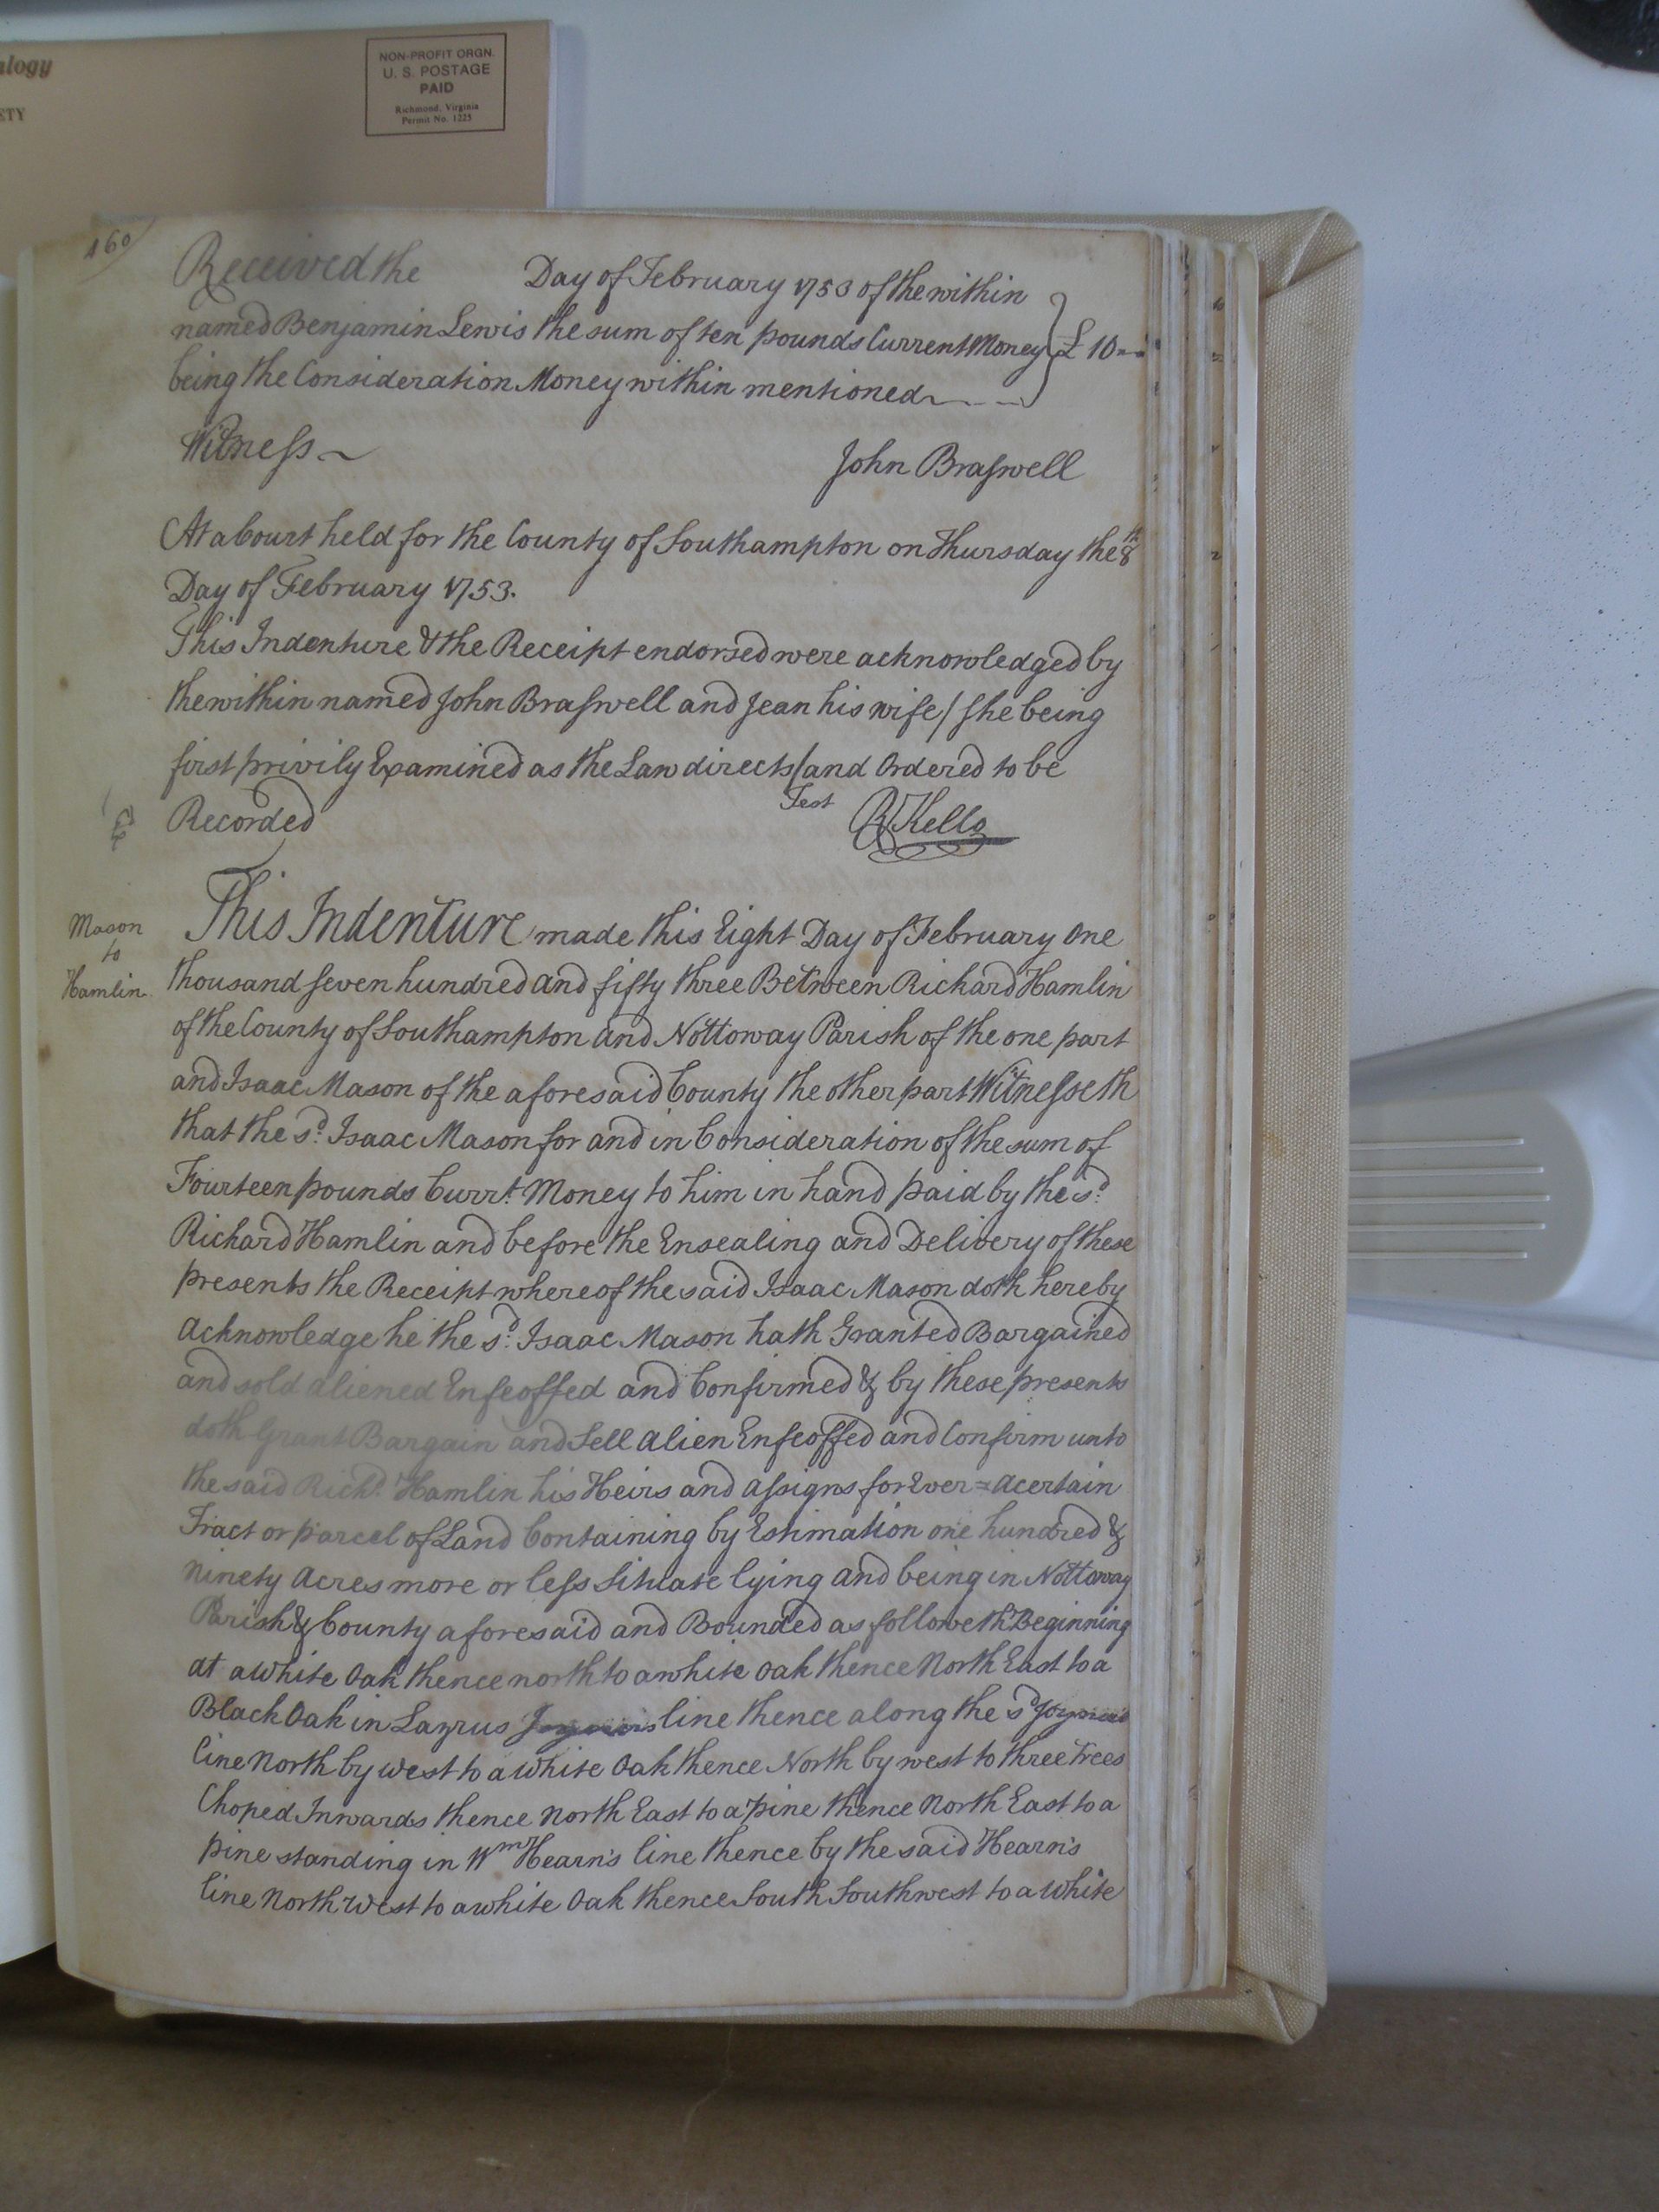 alogy
ETY
NON-PROFIT ORGN.
U. S. POSTAGE
PAID
Richmond, Virginia
Permit No. 1225
160
Received the Day of February 1753 of the within
named Benjamin Lewis the sum of ten pounds Current Money } £ 10 --
being the Consideration Money within mentioned
Witness
John Braswell
At a Court held for the County of Southampton on Thursday the 8th
Day of February 1753.
This Indenture & the Receipt endorsed were acknowledged by
the within named John Braswell and Jean his wife / she being
first privily Examined as the Law directs / and Ordered to be
Recorded
Test RKello
Mason
to
Hamlin
This Indenture made this Eight Day of February One
thousand seven hundred and fifty three Between Richard Hamlin
of the County of Southampton and Nottoway Parish of the one part
and Isaac Mason of the aforesaid County the other part Witnesseth
that the sd. Isaac Mason for and in Consideration of the sum of
Fourteen pounds Currt. Money to him in hand paid by the sd.
Richard Hamlin and before the Ensealing and Delivery of these
presents the Receipt whereof the said Isaac Mason doth hereby
Acknowledge he the sd. Isaac Mason hath Granted Bargained
and sold aliened Enfeoffed and Confirmed & by these presents
doth Grant Bargain and Sell alien Enfeoffed and Confirm unto
the said Richd. Hamlin his Heirs and assigns for Ever = a certain
Tract or parcel of Land Containing by Estimation one hundred &
ninety Acres more or less Situate lying and being in Nottoway
Parish & County aforesaid and Bounded as followeth Beginning
at a white Oak thence north to a white oak thence North East to a
Black Oak in Lazrus line thence along the sd
line North by west to a white Oak thence North by west to three trees
Choped Inwards thence North East to a pine thence North East to a
pine standing in Wm Hearn's line thence by the said Hearn's
line North west to a white Oak thence South Southwest to a white